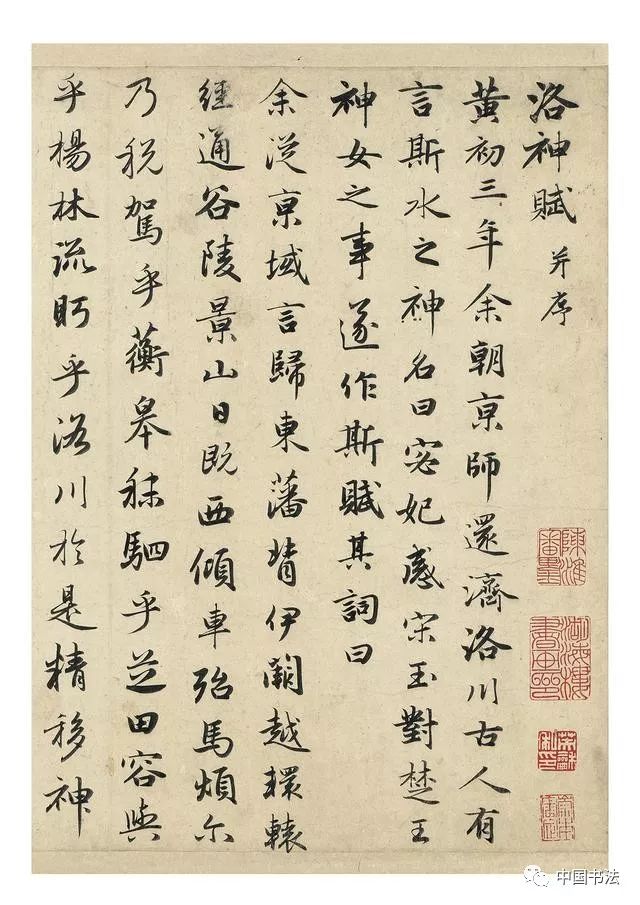 洛神賦 并序
黄初三年余朝京師還濟洛川古人有
言斯水之神名曰宓妃感宋玉對楚王
神女之事遂作斯賦其詞曰
余從京域言歸東藩背伊闕越轘轅
經通谷陵景山日既西傾車殆馬煩尔
乃税駕乎蘅皋秣駟乎芝田容與
乎楊林流眄乎洛川於是精移神
中国书法